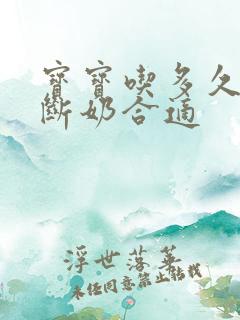 寶寶喫多久
斷奶合適
浮世落華
未经同意禁止转载